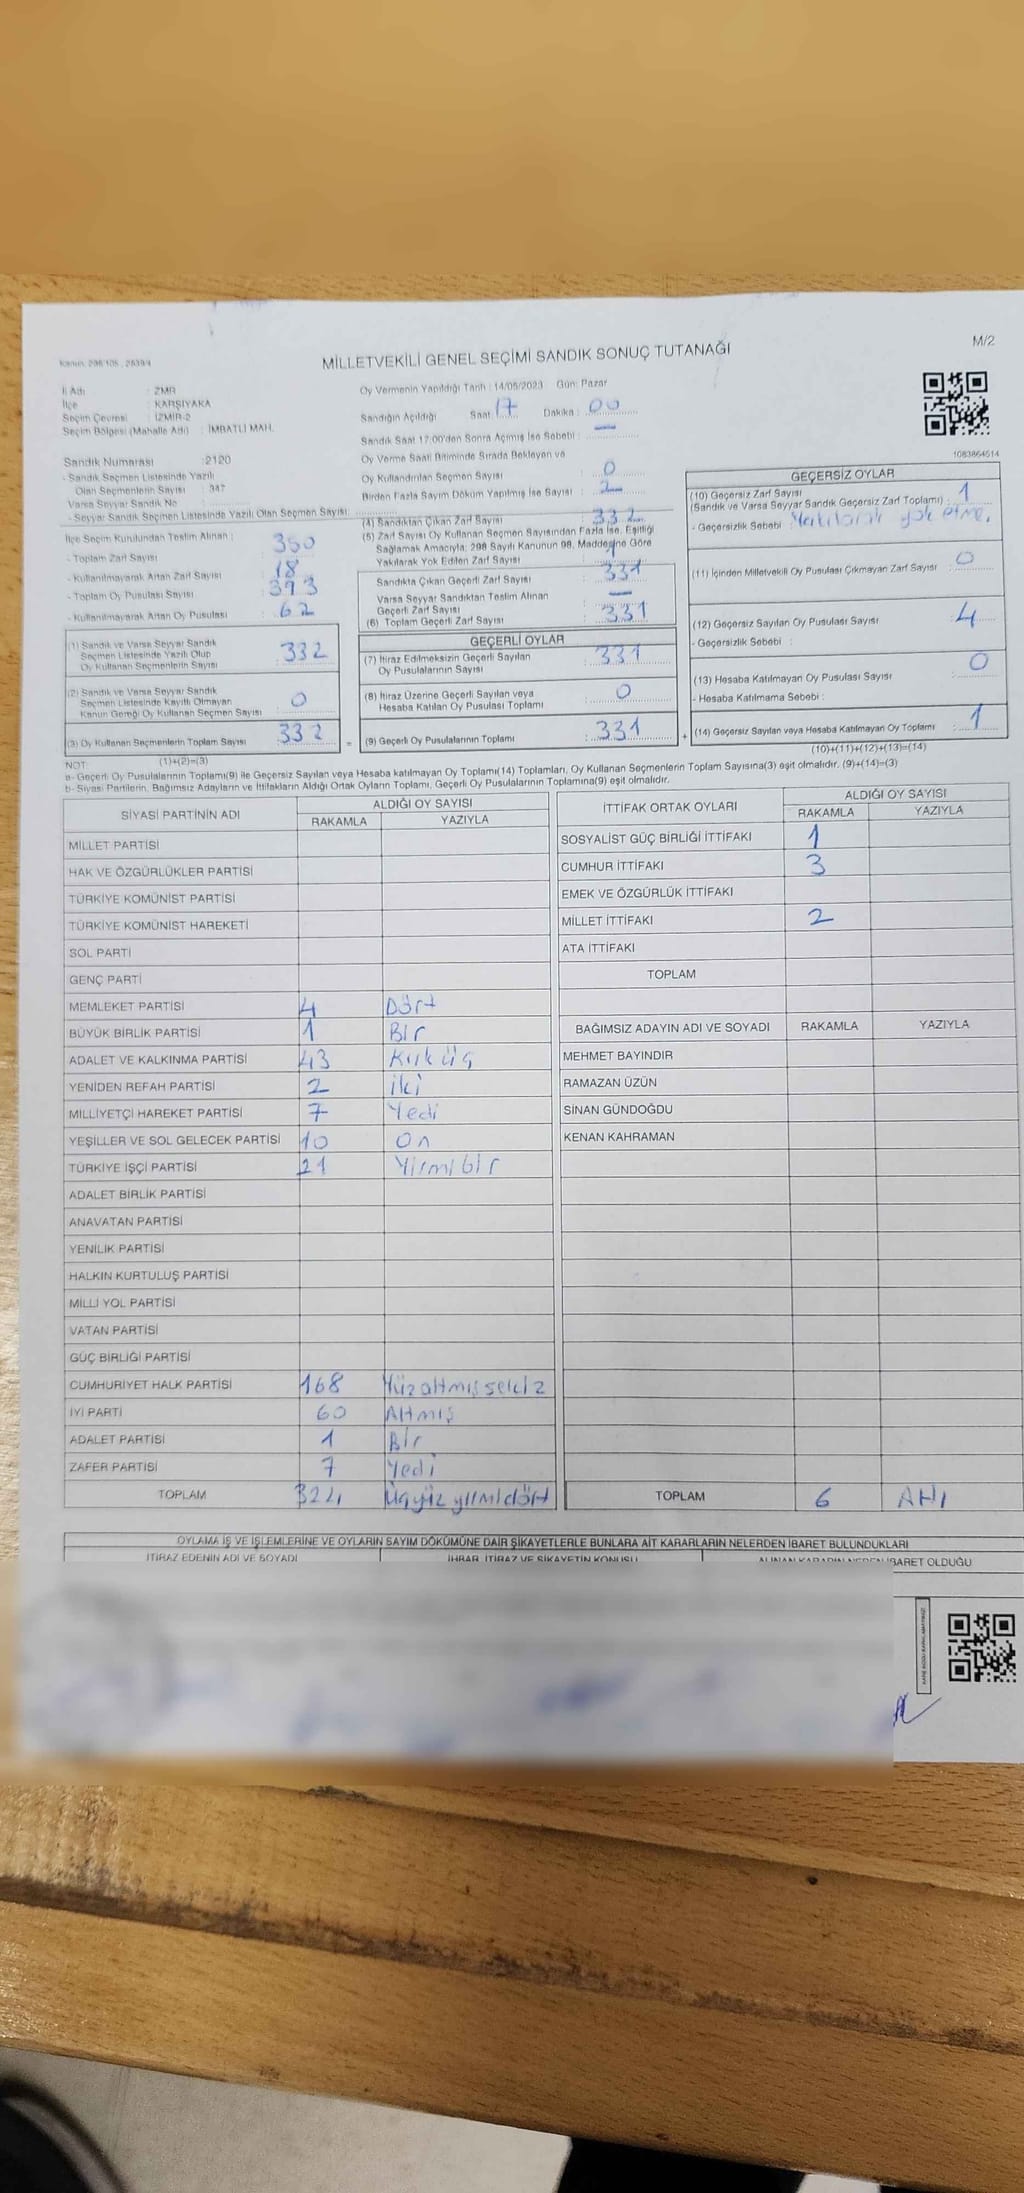 Kanun 298/105 , 2839/4
MİLLETVEKİLİ GENEL SEÇİMİ SANDIK SONUÇ TUTANAĞI
M/2
İl Adı : ZMR
İlçe : KARŞIYAKA
Seçim Çevresi : İZMİR-2
Seçim Bölgesi (Mahalle Adı) : İMBATLI MAH.
Sandık Numarası :2120
- Sandık Seçmen Listesinde Yazılı
Olan Seçmenlerin Sayısı : 347
Varsa Seyyar Sandık No :
- Seyyar Sandık Seçmen Listesinde Yazılı Olan Seçmen Sayısı:
İlçe Seçim Kurulundan Teslim Alınan :
- Toplam Zarf Sayısı : 350
- Kullanılmayarak Artan Zarf Sayısı : 18
- Toplam Oy Pusulası Sayısı : 393
- Kullanılmayarak Artan Oy Pusulası : 62
(1) Sandık ve Varsa Seyyar Sandık
Seçmen Listesinde Yazılı Olup
Oy Kullanan Seçmenlerin Sayısı 332
(2) Sandık ve Varsa Seyyar Sandık
Seçmen Listesinde Kayıtlı Olmayan
Kanun Gereği Oy Kullanan Seçmen Sayısı 0
(3) Oy Kullanan Seçmenlerin Toplam Sayısı 332
(1)+(2)=(3)
Oy Vermenin Yapıldığı Tarih : 14/05/2023 Gün: Pazar
Sandığın Açıldığı Saat : 17 Dakika : 00
Sandık Saat 17:00'den Sonra Açılmış İse Sebebi : —
Oy Verme Saati Bitiminde Sırada Bekleyen ve
Oy Kullandırılan Seçmen Sayısı : 0
Birden Fazla Sayım Döküm Yapılmış İse Sayısı : 2
(4) Sandıktan Çıkan Zarf Sayısı : 332
(5) Zarf Sayısı Oy Kullanan Seçmen Sayısından Fazla İse, Eşitliği
Sağlamak Amacıyla; 298 Sayılı Kanunun 98. Maddesine Göre
Yakılarak Yok Edilen Zarf Sayısı : 1
Sandıkta Çıkan Geçerli Zarf Sayısı : 331
Varsa Seyyar Sandıktan Teslim Alınan
Geçerli Zarf Sayısı : —
(6) Toplam Geçerli Zarf Sayısı : 331
GEÇERLİ OYLAR
(7) İtiraz Edilmeksizin Geçerli Sayılan
Oy Pusulalarının Sayısı : 331
(8) İtiraz Üzerine Geçerli Sayılan veya
Hesaba Katılan Oy Pusulası Toplamı : 0
= (9) Geçerli Oy Pusulalarının Toplamı : 331
1083864514
GEÇERSİZ OYLAR
(10) Geçersiz Zarf Sayısı
(Sandık ve Varsa Seyyar Sandık Geçersiz Zarf Toplamı) : 1
- Geçersizlik Sebebi : Yakılarak yok etme.
(11) İçinden Milletvekili Oy Pusulası Çıkmayan Zarf Sayısı : 0
(12) Geçersiz Sayılan Oy Pusulası Sayısı : 4
- Geçersizlik Sebebi :
(13) Hesaba Katılmayan Oy Pusulası Sayısı : 0
- Hesaba Katılmama Sebebi :
+ (14) Geçersiz Sayılan veya Hesaba Katılmayan Oy Toplamı : 1
(10)+(11)+(12)+(13)=(14)
NOT:
a- Geçerli Oy Pusulalarının Toplamı(9) ile Geçersiz Sayılan veya Hesaba katılmayan Oy Toplamı(14) Toplamları, Oy Kullanan Seçmenlerin Toplam Sayısına(3) eşit olmalıdır. (9)+(14)=(3)
b- Siyasi Partilerin, Bağımsız Adayların ve İttifakların Aldığı Ortak Oyların Toplamı, Geçerli Oy Pusulalarının Toplamına(9) eşit olmalıdır.
SİYASİ PARTİNİN ADI ALDIĞI OY SAYISI
RAKAMLA YAZIYLA
MİLLET PARTİSİ
HAK VE ÖZGÜRLÜKLER PARTİSİ
TÜRKİYE KOMÜNİST PARTİSİ
TÜRKİYE KOMÜNİST HAREKETİ
SOL PARTİ
GENÇ PARTİ
MEMLEKET PARTİSİ 4 Dört
BÜYÜK BİRLİK PARTİSİ 1 Bir
ADALET VE KALKINMA PARTİSİ 43 Kırk üç
YENİDEN REFAH PARTİSİ 2 iki
MİLLİYETÇİ HAREKET PARTİSİ 7 Yedi
YEŞİLLER VE SOL GELECEK PARTİSİ 10 On
TÜRKİYE İŞÇİ PARTİSİ 21 Yirmibir
ADALET BİRLİK PARTİSİ
ANAVATAN PARTİSİ
YENİLİK PARTİSİ
HALKIN KURTULUŞ PARTİSİ
MİLLİ YOL PARTİSİ
VATAN PARTİSİ
GÜÇ BİRLİĞİ PARTİSİ
CUMHURİYET HALK PARTİSİ 168 Yüzaltmışsekiz
İYİ PARTİ 60 Altmış
ADALET PARTİSİ 1 Bir
ZAFER PARTİSİ 7 Yedi
TOPLAM 324 Üçyüz yirmidört
İTTİFAK ORTAK OYLARI ALDIĞI OY SAYISI
RAKAMLA YAZIYLA
SOSYALİST GÜÇ BİRLİĞİ İTTİFAKI 1
CUMHUR İTTİFAKI 3
EMEK VE ÖZGÜRLÜK İTTİFAKI
MİLLET İTTİFAKI 2
ATA İTTİFAKI
TOPLAM
BAĞIMSIZ ADAYIN ADI VE SOYADI RAKAMLA YAZIYLA
MEHMET BAYINDIR
RAMAZAN ÜZÜN
SİNAN GÜNDOĞDU
KENAN KAHRAMAN
TOPLAM 6 Altı
OYLAMA İŞ VE İŞLEMLERİNE VE OYLARIN SAYIM DÖKÜMÜNE DAİR ŞİKAYETLERLE BUNLARA AİT KARARLARIN NELERDEN İBARET BULUNDUKLARI
İTİRAZ EDENİN ADI VE SOYADI İHBAR, İTİRAZ VE ŞİKAYETİN KONUSU ALINAN KARARIN NEDEN İBARET OLDUĞU